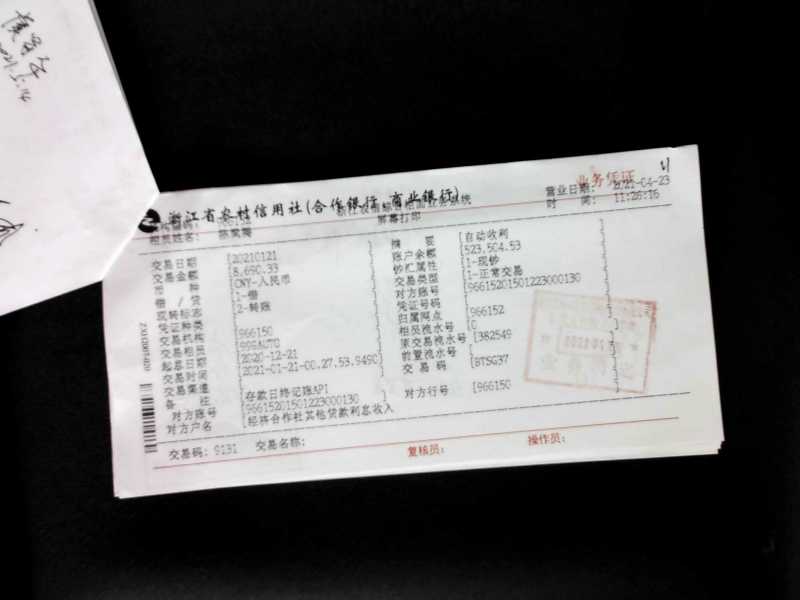 2021.5.14
浙江省农村信用社(合作银行、商业银行)
业务凭证
营业日期: 2021-04-23
时 间: 11:26:16
屏幕打印
柜员姓名:
交易日期 [20210121]
摘 要 [自动收利
交易金额 [8,690.33
账户余额 [523,504.53
币 种 [CNY-人民币
钞汇属性 [1-现钞
借 / 贷 [1-借
交易类型 [1-正常交易
现转标志 [2-转账
对方账号 [966152015012230001​30
凭证种类
凭证号码
交易机构 [966150
归属网点 [966152
交易柜员 [999AUTO
柜员流水号 [0
起息日期 [2020-12-21
原交易流水号 [382549
交易时间 [2021-01-21-00.27.53.9490
前置流水号
交易渠道
交易码 [BTSG37
备 注 [存款日终记账API
对方账号 [96615201501223000130
对方行号 [966150
对方户名 [经济合作社其他贷款利息收入
交易码: 9131 交易名称:
复核员:
操作员: